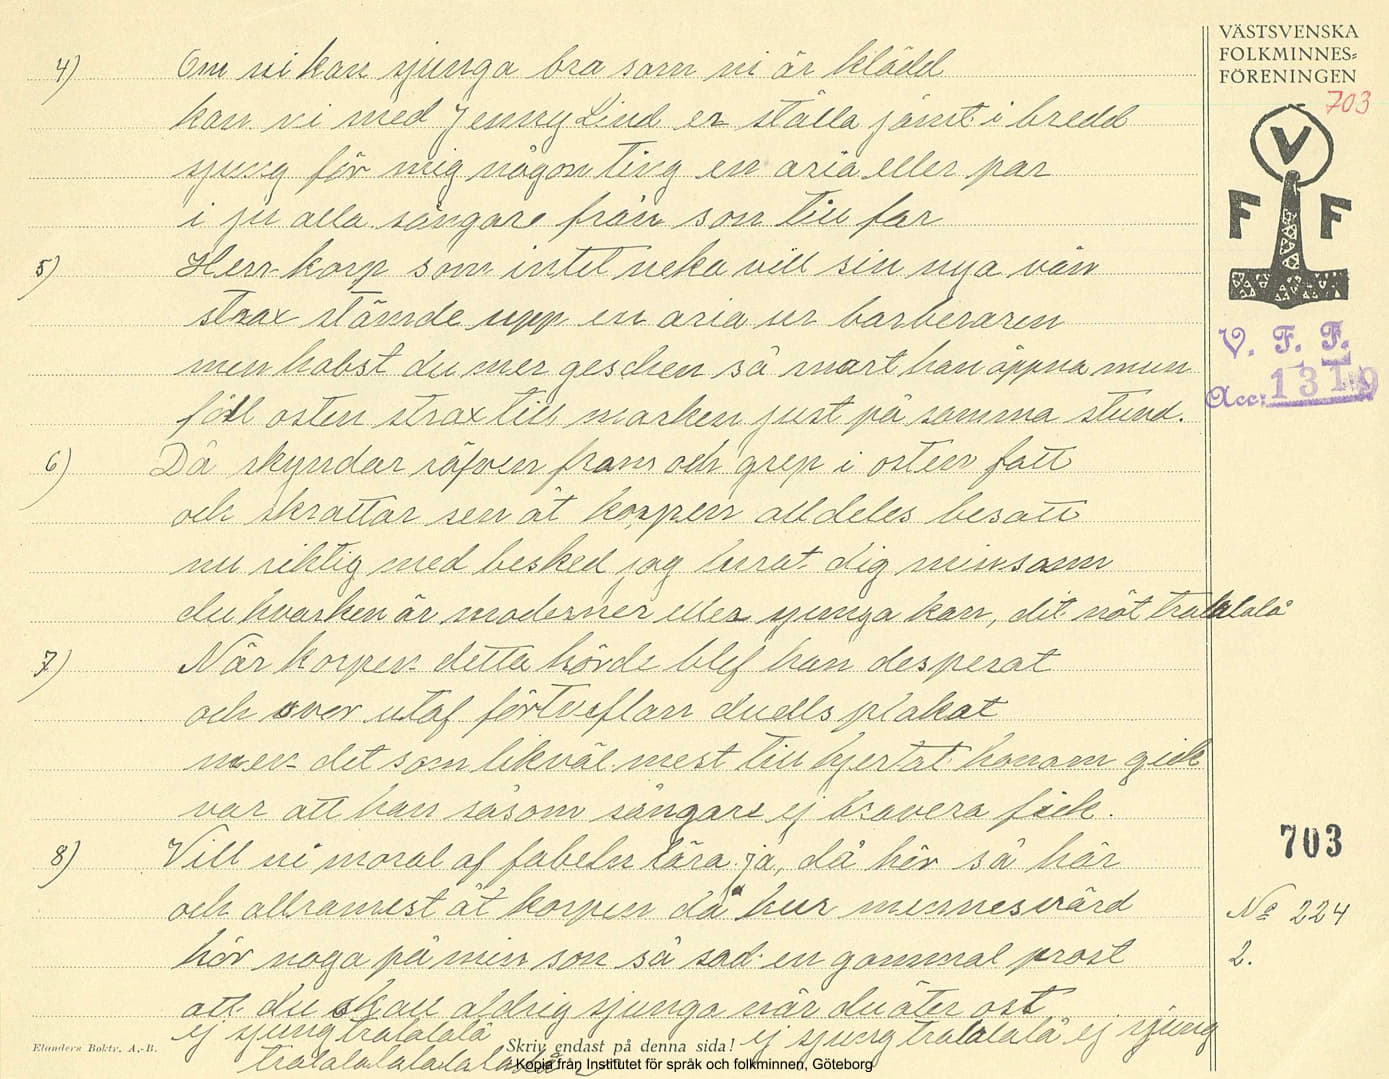 VÄSTSVENSKA
FOLKMINNES=
FÖRENINGEN
703
V
F F
V. F. F.
Acc: 1319
4) Om ni kan sjunga bra som ni är klädd
kan ni med Jenny Lind er ställa jämt i bredd
sjung för mig någon ting en aria eller par
i ju alla sångare från son till far
5) Herr korp som intet neka vill sin nya vän
strax stämde upp en aria ur barberaren
men habst du mer geschen så snart han öppna mun
föll osten strax till marken just på samma stund.
6) Då skyndar räfven fram och grep i osten fatt
och skrattar sen åt korpen alldeles besatt
nu riktig med besked jag lurat dig minsann
du hvarken är moderner eller sjunga kan, dit nöt tralalala
7) När korpen detta hörde blef han desperat
och svor utaf förtveflan duells plakat
men det som likväl mest till hjertat honom gick
var att han såsom sångare ej bravera fick.
8) Vill ni moral af fabeln lära ja, då hör så här
och allramest åt korpen då hur
hör noga på min son så sad en gammal prost
att du skall aldrig sjunga när du äter ost
ej sjung tralalala ej sjung tralalala ej sjung
703
No 224
2.
Elanders Boktr. A.-B.
Skriv endast på denna sida!
Kopia från Institutet för språk och folkminnen, Göteborg